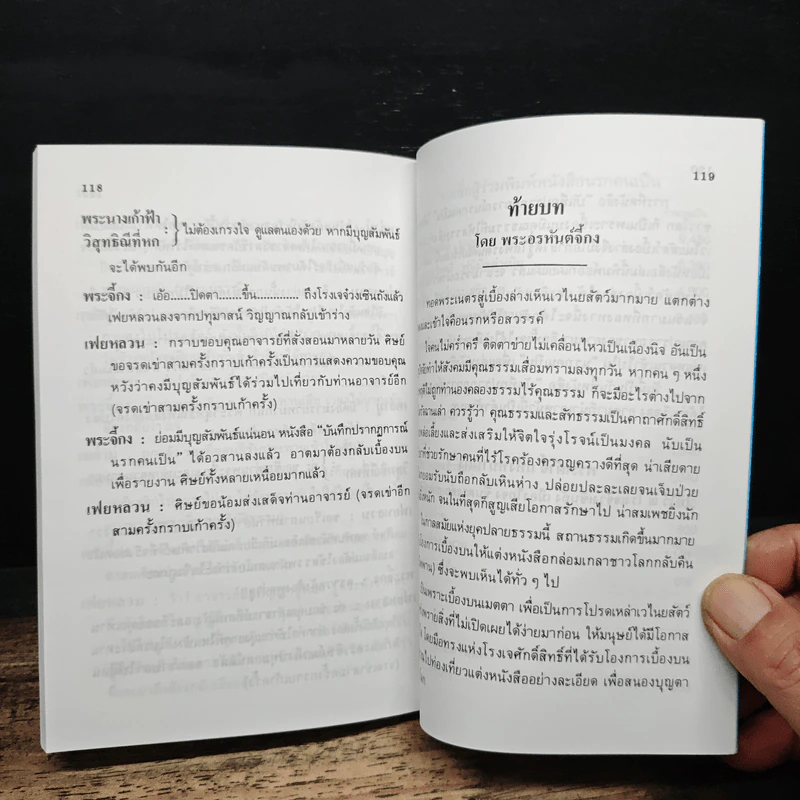 118
พระนางเก้าฟ้า
วิสุทธิณีที่หก
: ไม่ต้องเกรงใจ ดูแลตนเองด้วย หากมีบุญสัมพันธ์
จะได้พบกันอีก
พระจี้กง : เอ้อ......ปิดตา.......ขึ้น............. ถึงโรงเจจ๋วงเซินถังแล้ว
เฟยหลวนลงจากปทุมาสน์ วิญญาณกลับเข้าร่าง
เฟยหลวน : กราบขอบคุณอาจารย์ที่สั่งสอนมาหลายวัน ศิษย์
ขอจรดเข่าสามครั้งกราบเก้าครั้งเป็นการแสดงความขอบคุณ
หวังว่าคงมีบุญสัมพันธ์ได้ร่วมไปเที่ยวกับท่านอาจารย์อีก
(จรดเข่าสามครั้งกราบเก้าครั้ง)
พระจี้กง : ย่อมมีบุญสัมพันธ์แน่นอน หนังสือ “บันทึกปรากฏการณ์
นรกคนเป็น” ได้อวสานลงแล้ว อาตมาต้องกลับเบื้องบน
เพื่อรายงาน ศิษย์ทั้งหลายเหนื่อยมากแล้ว
เฟยหลวน : ศิษย์ขอน้อมส่งเสด็จท่านอาจารย์ (จรดเข่าอีก
สามครั้งกราบเก้าครั้ง)
119
ท้ายบท
โดย พระอรหันต์จี้กง
ทอดพระเนตรสู่เบื้องล่างเห็นเวไนยสัตว์มากมาย แตกต่าง
และเข้าใจคือนรกหรือสวรรค์
ใจคนไม่คร่ำครึ ติดตาข่ายไม่เคลื่อนไหวเป็นเนืองนิจ อันเป็น
ทำให้สังคมมีคุณธรรมเสื่อมทรามลงทุกวัน หากคน ๆ หนึ่ง
ไม่ถูกทำนองคลองธรรมไร้คุณธรรม ก็จะมีอะไรต่างไปจาก
ควรรู้ว่า คุณธรรมและสัทธรรมเป็นคาถาศักดิ์สิทธิ์
หล่อเลี้ยงและส่งเสริมให้จิตใจรุ่งโรจน์เป็นมงคล นับเป็น
ที่ช่วยรักษาคนที่ไร้โรคร้องครวญครางดีที่สุด น่าเสียดาย
ยอมรับนับถือกลับเหินห่าง ปล่อยปละละเลยจนเจ็บป่วย
หนัก จนในที่สุดก็สูญเสียโอกาสรักษาไป น่าสมเพชยิ่งนัก
ในกาลสมัยแห่งยุคปลายธรรมนี้ สถานธรรมเกิดขึ้นมากมาย
การเบื้องบนให้แต่งหนังสือกล่อมเกลาชาวโลกกลับคืน
ซึ่งจะพบเห็นได้ทั่ว ๆ ไป
เป็นเพราะเบื้องบนเมตตา เพื่อเป็นการโปรดเหล่าเวไนยสัตว์
สิ่งที่ไม่เปิดเผยได้ง่ายมาก่อน ให้มนุษย์ได้มีโอกาส
โดยมือทรงแห่งโรงเจศักดิ์สิทธิ์ที่ได้รับโองการเบื้องบน
ไปท่องเที่ยวแต่งหนังสืออย่างละเอียด เพื่อสนองบุญตา